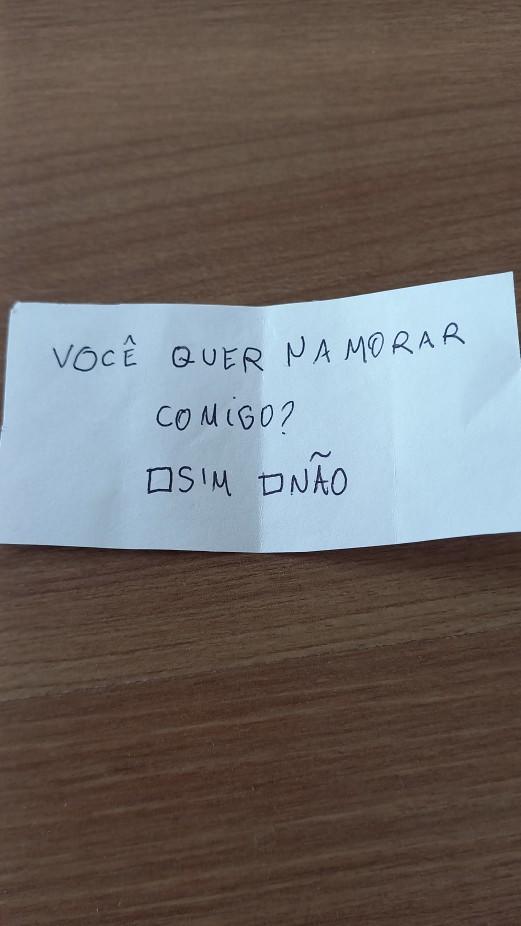 VOCÊ QUER NAMORAR
COMIGO?
☐SIM ☐NÃO